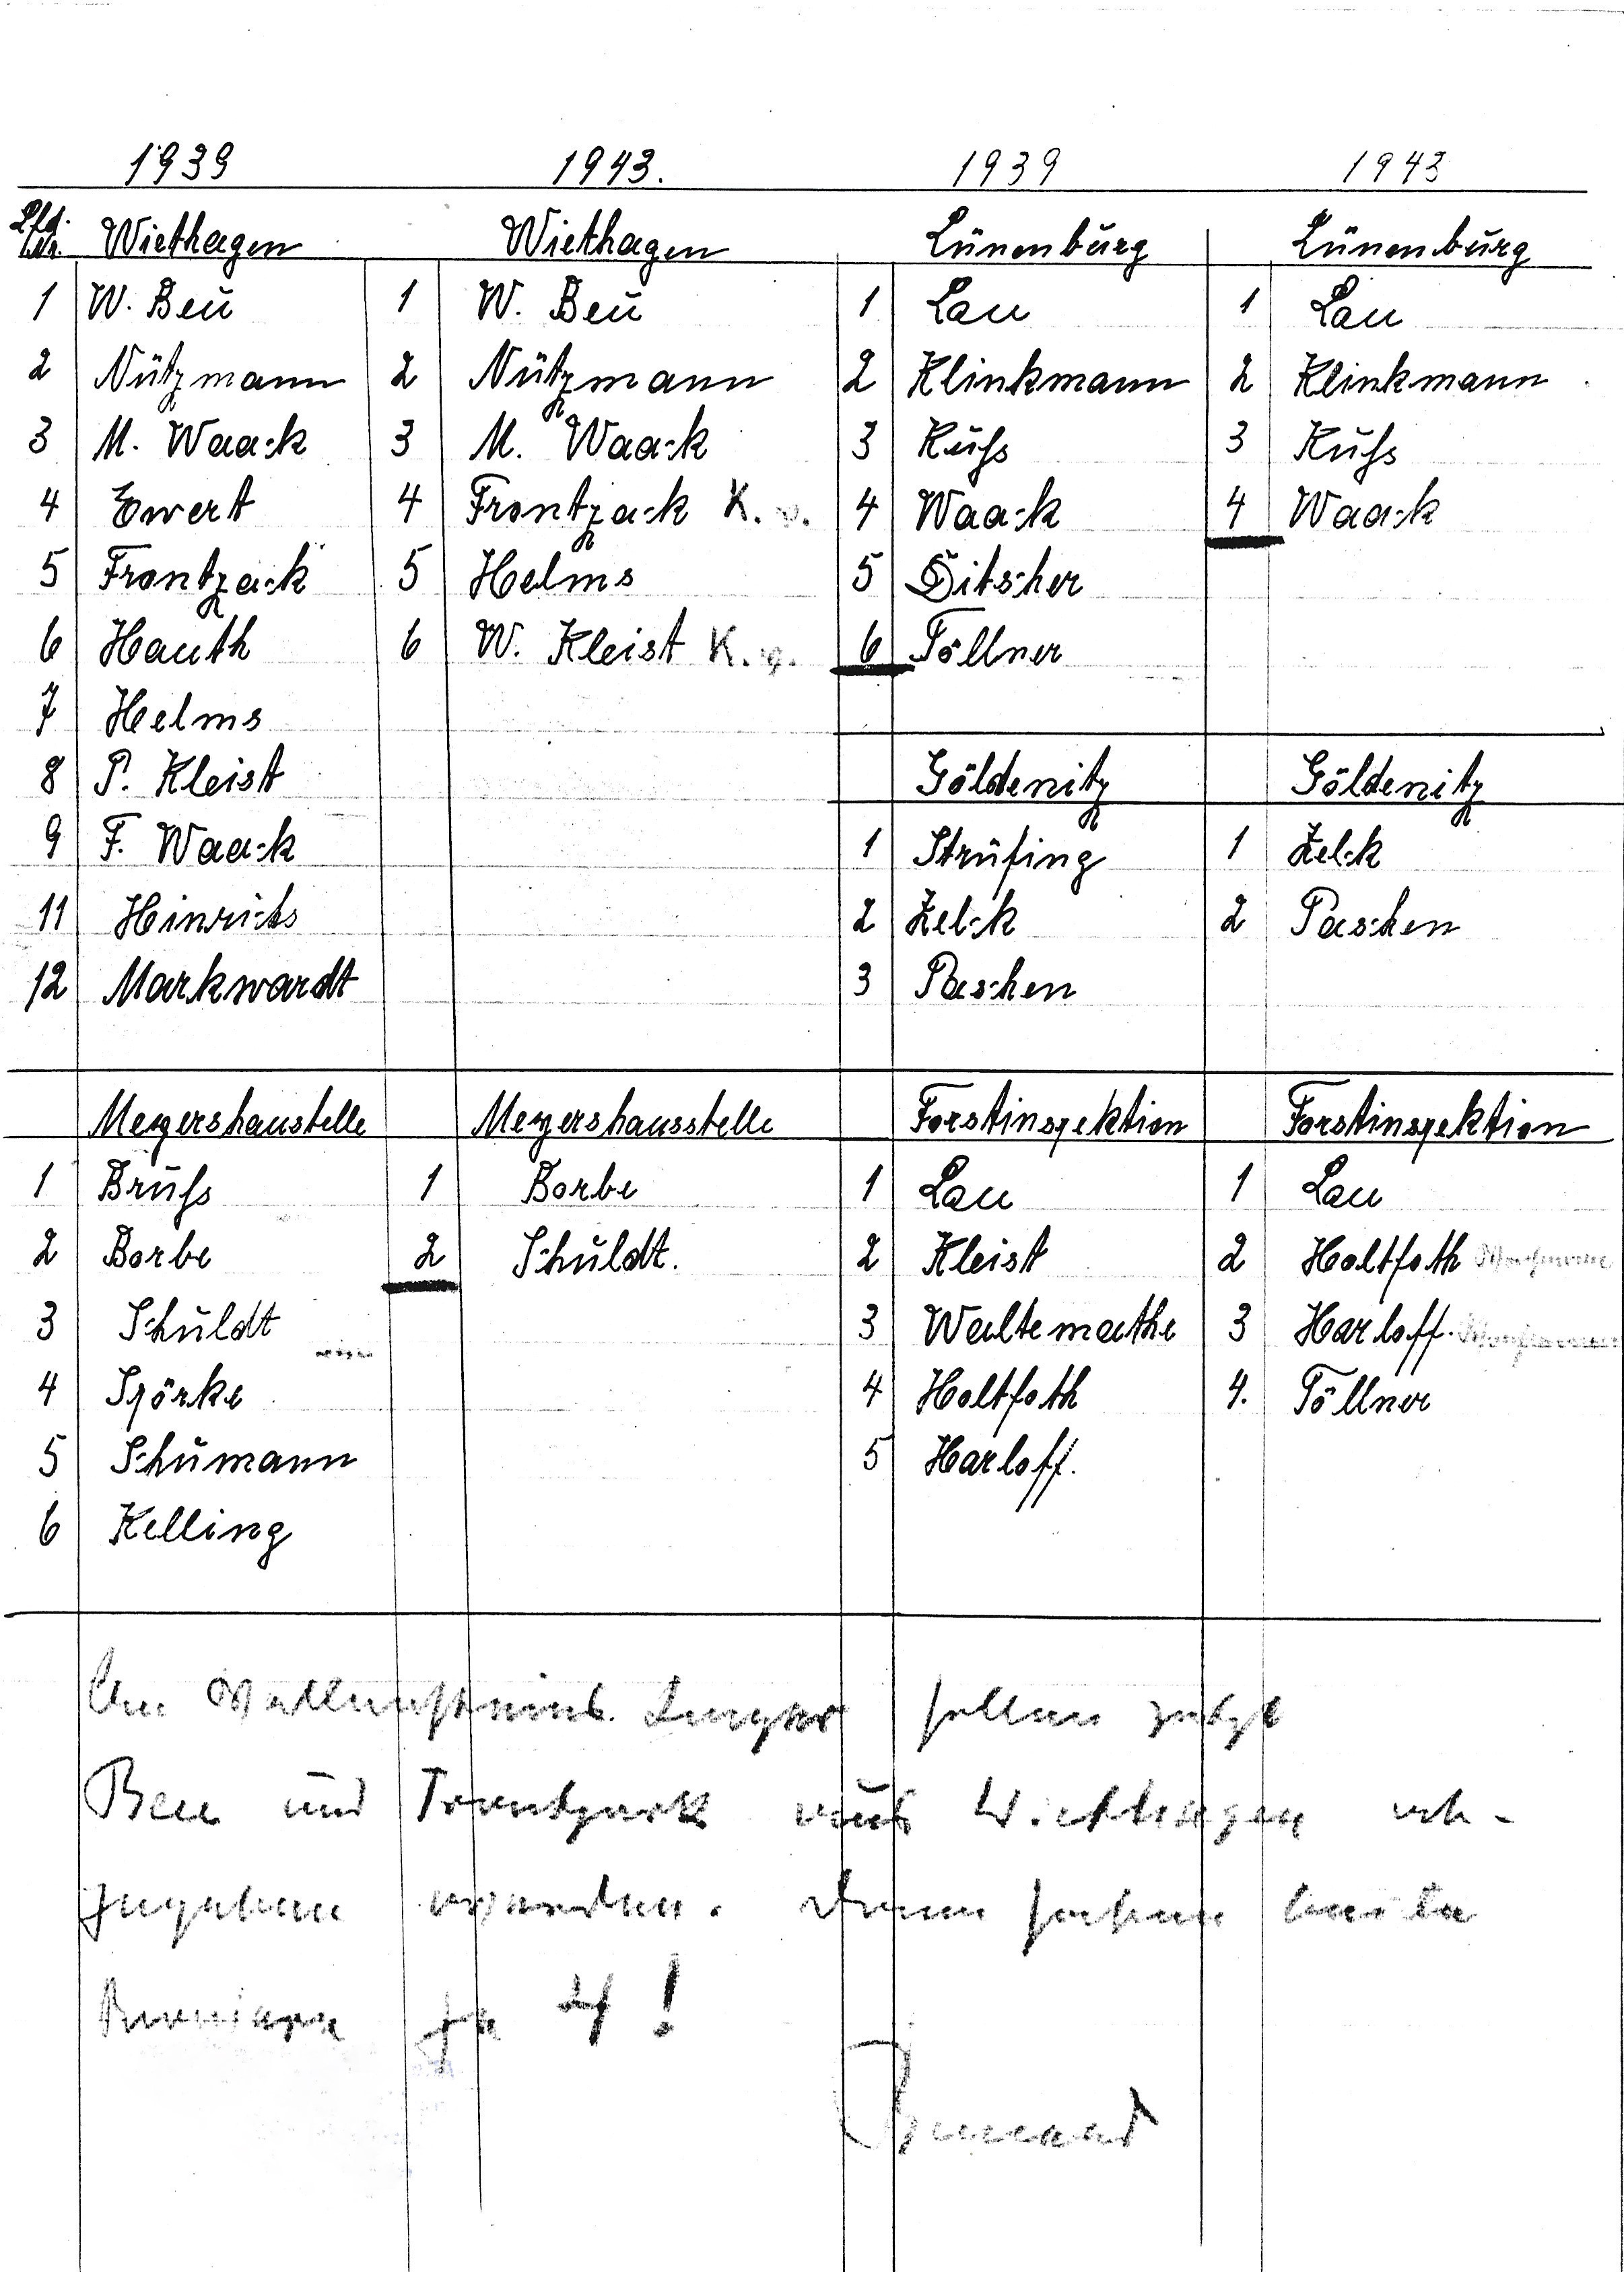 1939 1943. 1939 1943
Lfd. Nr. Wiethagen Wiethagen Lünenburg Lünenburg
1 W. Beu 1 W. Beu 1 Lau 1 Lau
2 Nützmann 2 Nützmann 2 Klinkmann 2 Klinkmann
3 M. Waack 3 M. Waack 3 Kuhs 3 Kuhs
4 Ewert 4 Frontzack K.v. 4 Waack 4 Waack
5 Frontzack 5 Helms 5 Ditscher
6 Hauth 6 W. Kleist K.v. 6 Töllner
7 Helms
8 P. Kleist Göldenitz Göldenitz
9 F. Waack 1 Strüfing 1 Zelck
11 Hinrichs 2 Zelck 2 Paschen
12 Markwardt 3 Paschen
Meyershaustelle Meyershausstelle Forstinspektion Forstinspektion
1 Bruhs 1 Borbe 1 Lau 1 Lau
2 Borbe 2 Schuldt. 2 Kleist 2 Holtfoth
3 Schuldt 3 Waltemathe 3 Harloff.
4 Spörke 4 Holtfoth 4. Töllner
5 Schumann 5 Harloff.
6 Kelling
sollen jetzt
Beu und Frontzack aus Wiethagen ab-
gegeben werden. Dann haben beide
Reviere je 4!